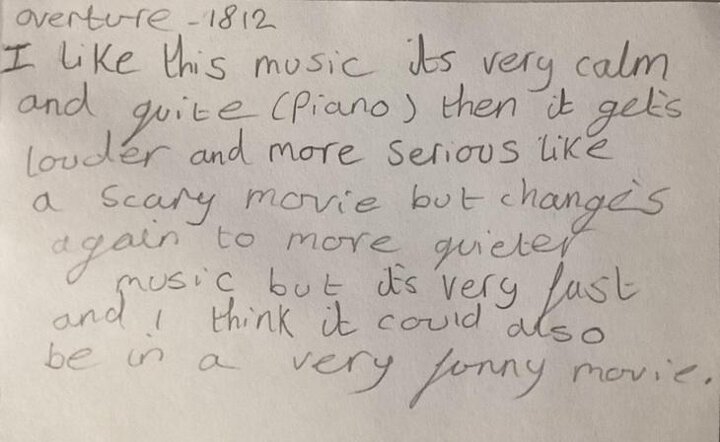 overture - 1812
I like this music it's very calm
and quite (piano) then it get's
louder and more serious like
a scary movie but change's
again to more quieter
music but it's very fast
and I think it could also
be in a very funny movie.